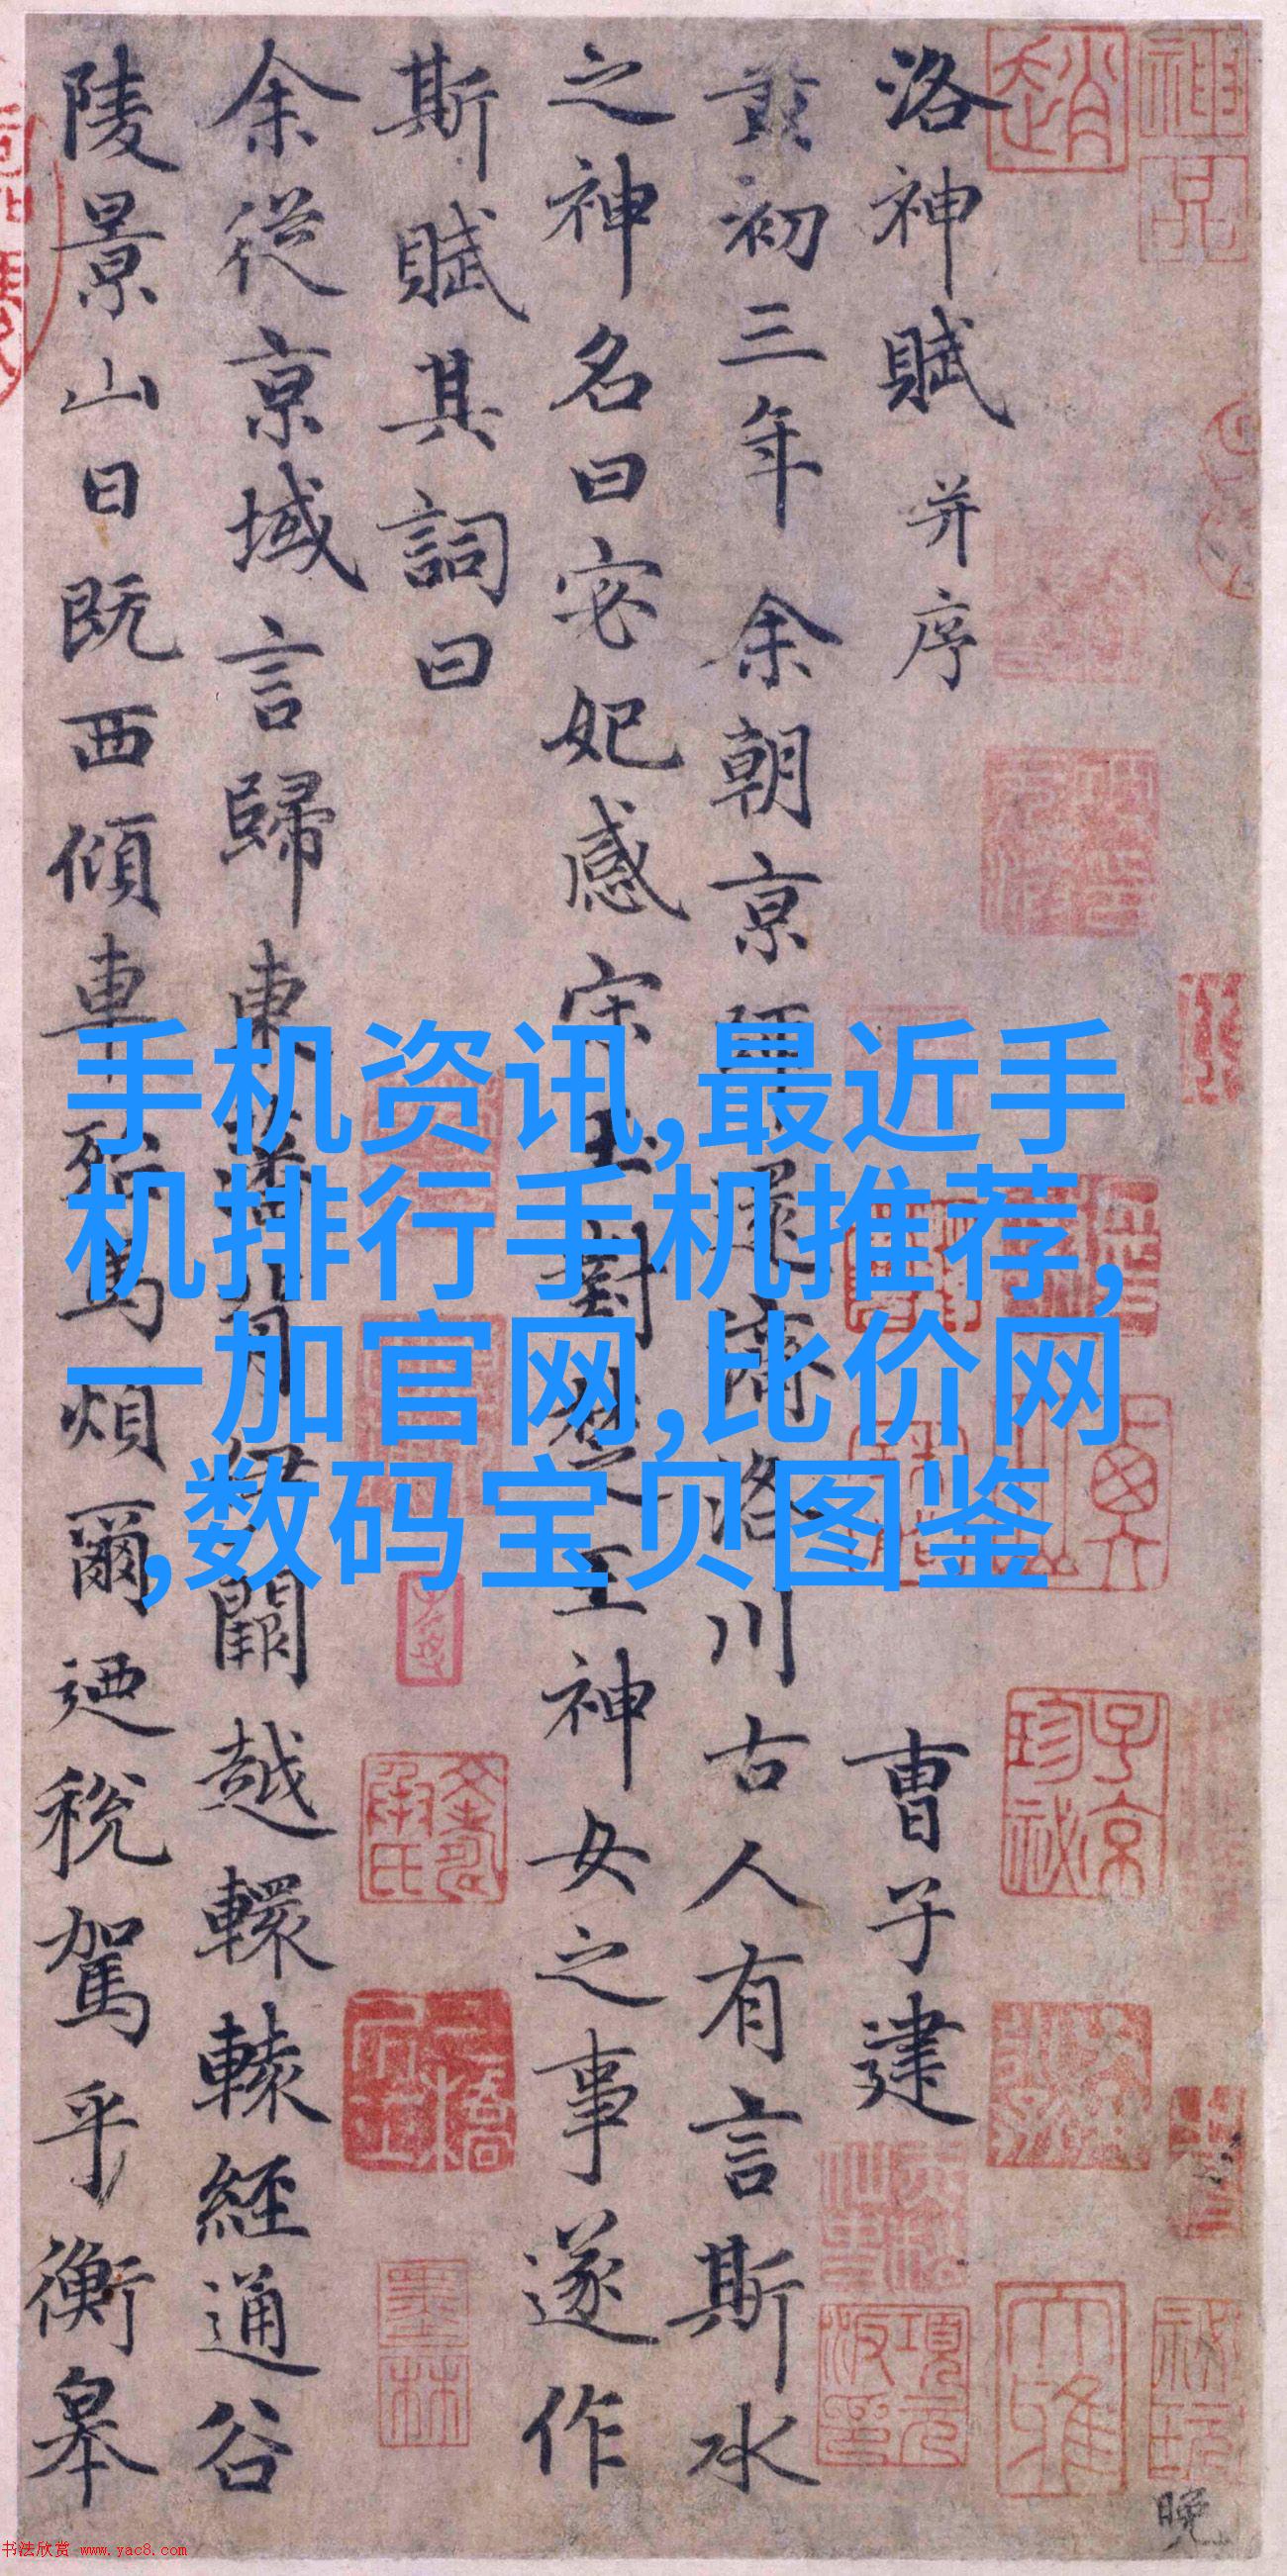 洛神賦 并序
曹子建
黄初三年余朝京師還濟洛川古人有言斯水
之神名曰宓妃感宋玉對楚王神女之事遂作
斯賦其詞曰
余從京域言歸東藩背伊闕越轘轅經通谷
陵景山日既西傾車殆馬煩爾迺税駕乎衡皋
手机资讯,最近手
机排行手机推荐,
一加官网,比价网
,数码宝贝图鉴
趙
子京
珍祕
墨林
項元
晚
书法欣赏 www.yac8.com